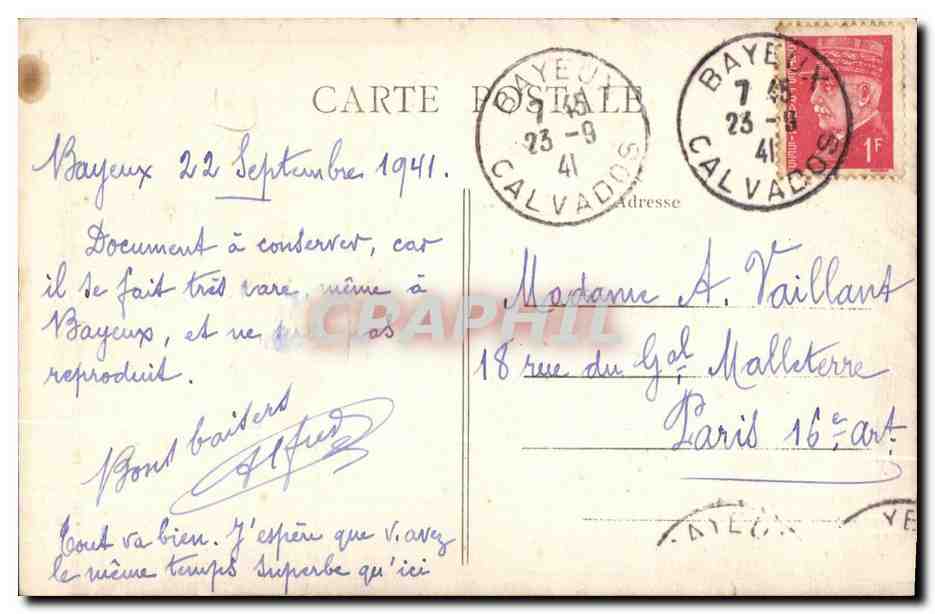 CARTE POSTALE
BAYEUX
7 45
23 - 9
41
CALVADOS
BAYEUX
7 45
23 - 9
41
CALVADOS
1F
Bayeux 22 Septembre 1941.
Document à conserver, car
il se fait très rare, même à
Bayeux, et ne pas
reproduit.
Bons baisers
Alfred
Tout va bien. J'espère que v. avez
le même temps superbe qu'ici
Adresse
Madame A. Vaillant
18 rue du Gal Malleterre
Paris 16e art
CRAPHIL
AYEUX
YE